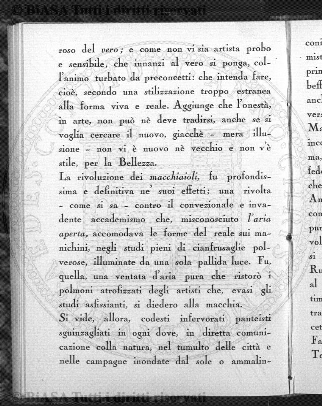 © BiASA Tutti i diritti riservati
roso del vero; e come non vi sia artista probo
e sensibile, che innanzi al vero si ponga, col-
l'animo turbato da preconcetti: che intenda fare,
cioè, secondo una stilizzazione troppo estranea
alla forma viva e reale. Aggiunge che l'onestà,
in arte, non può nè deve tradirsi, anche se si
voglia cercare il nuovo, giacchè - mera illu-
sione - non vi è nuovo nè vecchio e non v'è
stile, per la Bellezza.
La rivoluzione dei macchiaioli, fu profondis-
sima e definitiva ne' suoi effetti: una rivolta
- come si sa - contro il convenzionale e inva-
dente accademismo che, misconosciuto l'aria
aperta, accomodava le forme del reale sui ma-
nichini, negli studi pieni di cianfrusaglie pol-
verose, illuminate da una sola pallida luce. Fu,
quella, una ventata d'aria pura che ristorò i
polmoni atrofizzati degli artisti che, evasi gli
studi asfissianti, si diedero alla macchia.
Si vide, allora, codesti infervorati panteisti
sguinzagliati in ogni dove, in diretta comuni-
cazione colla natura, nel tumulto delle città e
nelle campagne inondate dal sole o ammalin-
© BiASA Tutti i diritti riservati